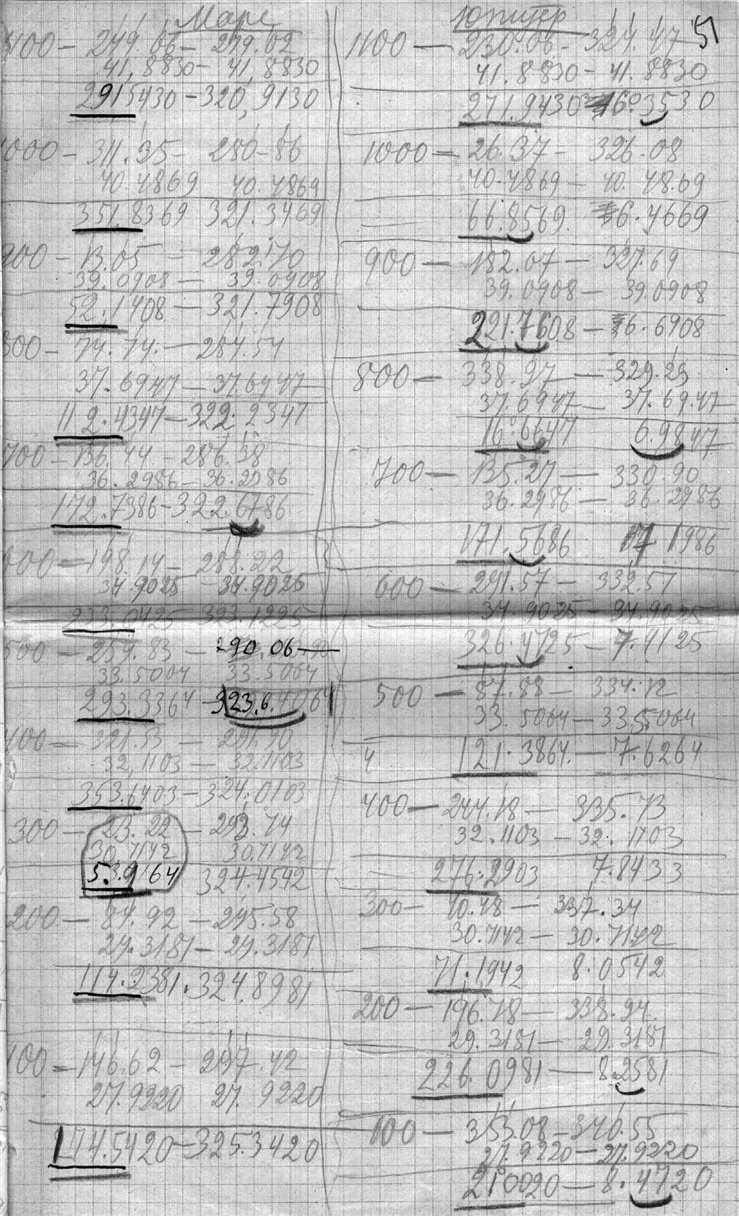 Марс
1100 – 249.66 – 279.02
41,8830 – 41,8830
291.5430 – 320,9130
1000 – 311.35 – 280.86
40.4869 40.4869
351.8369 321.3469
900 – 13.05 – 282.70
39.0908 – 39.0908
52.1408 – 321.7908
800 – 74.74 – 284.54
37.6947 – 37.6947
112.4347 – 322.2347
700 – 136.44 – 286.38
36.2986 – 36.2986
172.7386 – 322.6786
600 – 198.14 – 288.22
34.9025 – 34.9025
233.0425 – 323.1225
500 – 259.83 – 290.06
33.5064 33.5064
293.3364 –
400 – 321.53 –
32,1103 – 32.1103
353.6403 – 324.0103
300 – 23.22 – 293.74
30.7142 30.7142
53.9164 324.4542
200 – 84.92 – 295.58
29.3181 – 29.3181
114.2381 . 324.8981
100 – 146.62 – 297.42
27.9220 27.9220
174.5420 – 325.3420
Юпитер 51
1100 – 230.06 – 324.47
41.8830 – 41.8830
271.9430 6.3530
1000 – 26.37 – 326.08
40.4869 – 40.4869
66.8569 6.4669
900 – 182.07 – 327.69
39.0908 – 39.0908
221.7608 – 6.6908
800 – 338.97 – 329.29
37.6947 – 37.6947
16.6647 6.9847
700 – 135.27 – 330.90
36.2986 – 36.2986
171.5686 7.1986
600 – 291.57 – 332.57
34.9025 – 34.9025
326.4725 – 7.4125
500 – 87.88 – 334.12
33.5064 – 33.5064
4 121.3864 – 7.6264
400 – 244.18 – 335.73
32.1103 – 32.1103
276.2903 7.8433
300 – 40.48 – 337.34
30.7142 – 30.7142
71.1942 8.0542
200 – 196.78 – 338.94
29.3181 – 29.3181
226.0981 – 8.2581
100 – 353.08 – 340.55
27.9220 – 27.9220
21.0020 – 8.4720